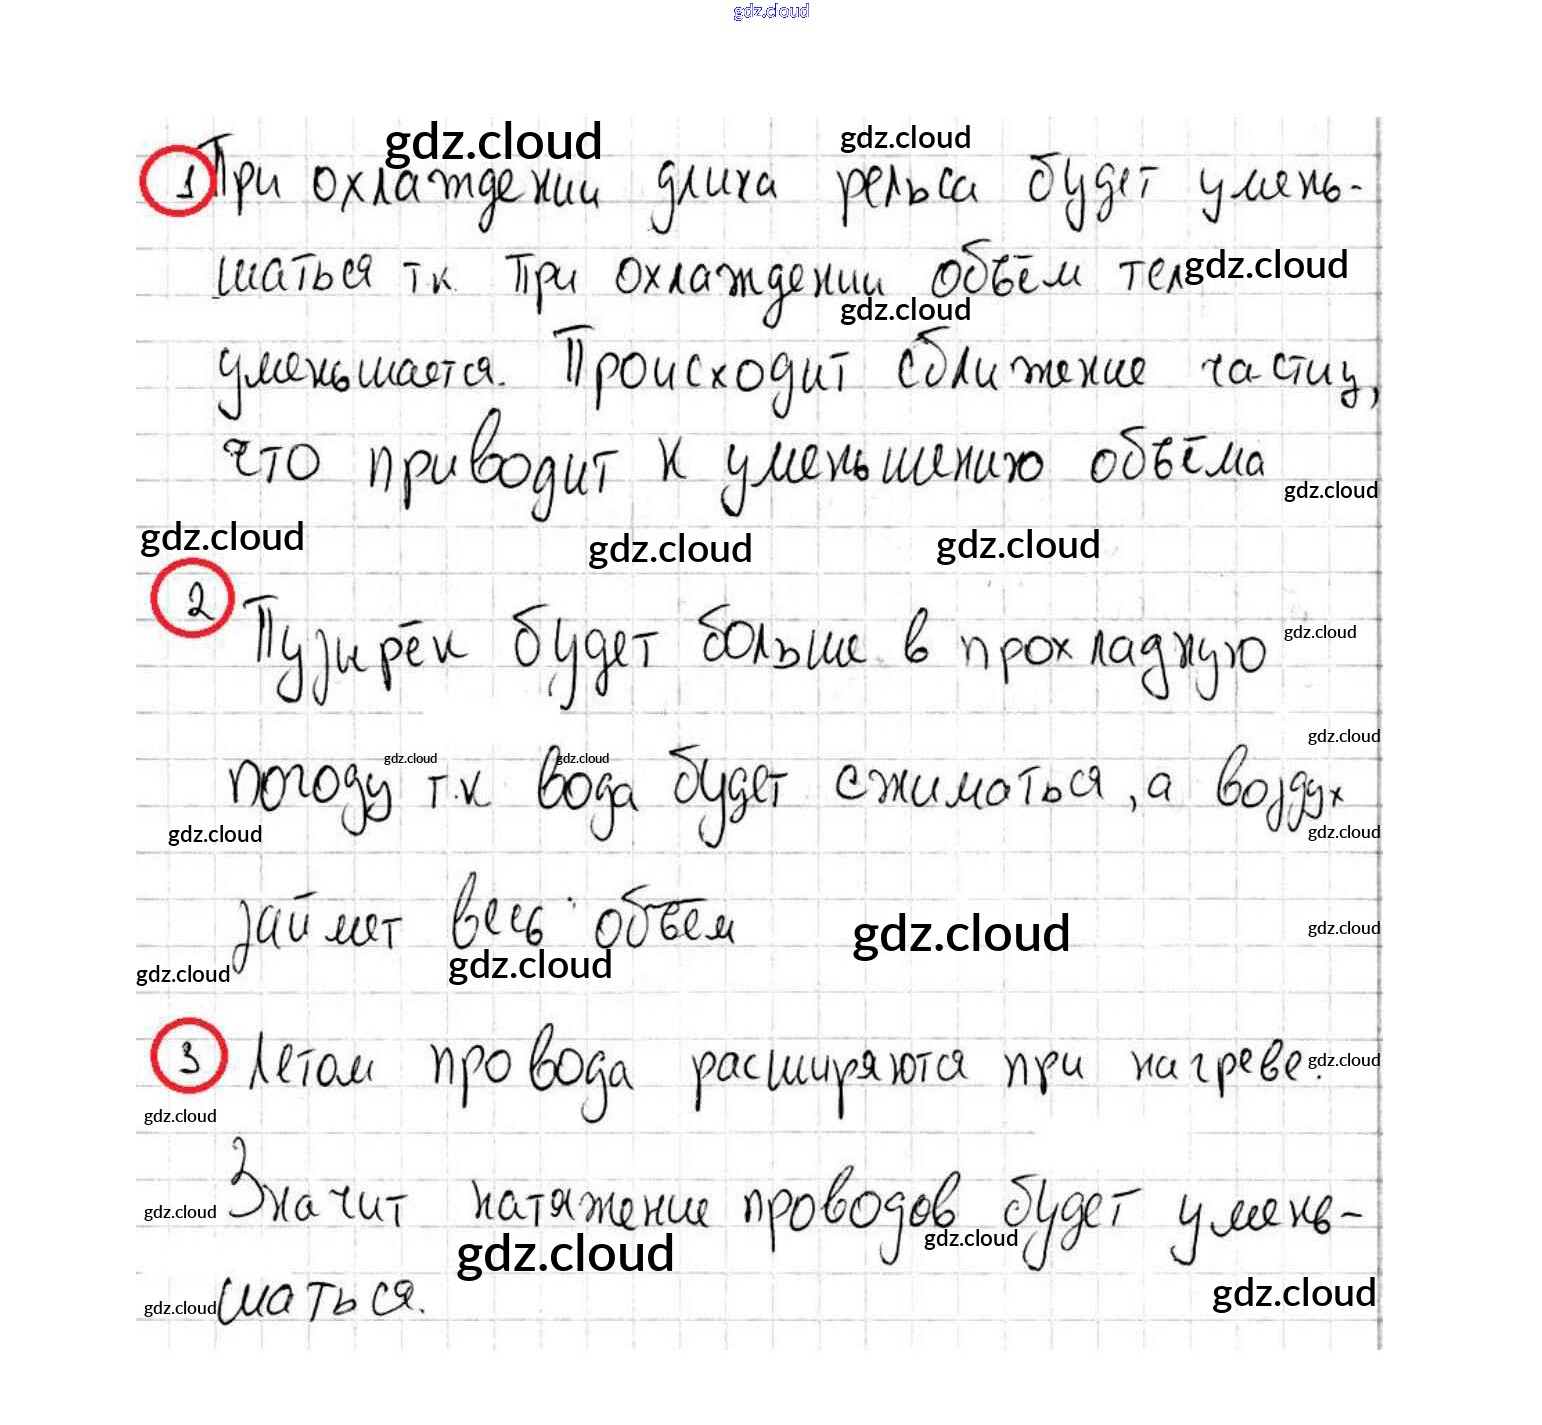 gdz.cloud
gdz.cloud gdz.cloud
1 При охлаждении длина рельса будет умень-
шаться т.к. При охлаждении объём тел gdz.cloud
gdz.cloud
уменьшается. Происходит сближение частиц,
что приводит к уменьшению объёма
gdz.cloud
gdz.cloud gdz.cloud gdz.cloud
2 Пузырёк будет больше в прохладную gdz.cloud
gdz.cloud
gdz.cloud gdz.cloud
погоду т.к вода будет сжиматься, а воздух
gdz.cloud gdz.cloud
займет весь объем gdz.cloud gdz.cloud
gdz.cloud gdz.cloud
3 Летом провода расширяются при нагреве. gdz.cloud
gdz.cloud
gdz.cloud Значит натяжение проводов будет умень-
gdz.cloud gdz.cloud
gdz.cloud шаться. gdz.cloud